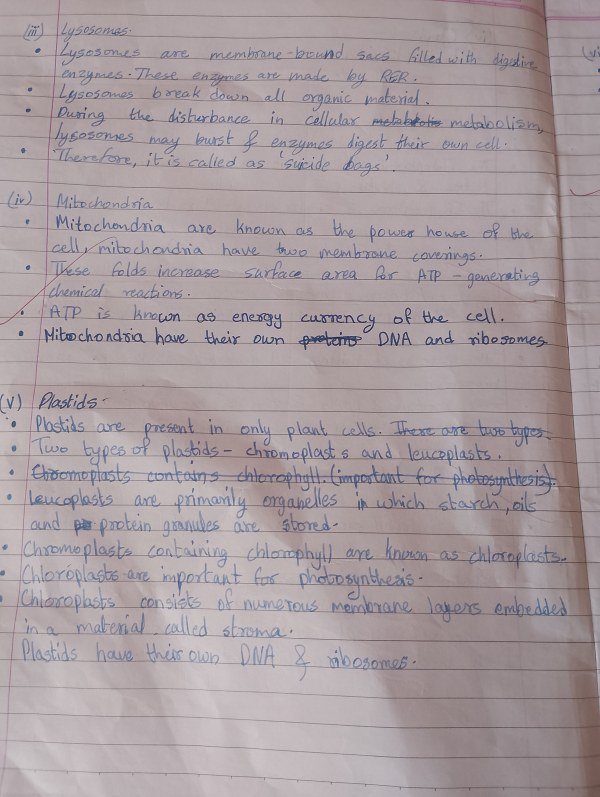 (iii) Lysosomes.
• Lysosomes are membrane-bound sacs filled with digestive
enzymes. These enzymes are made by RER.
• Lysosomes break down all organic material.
• During the disturbance in cellular metabolism,
lysosomes may burst & enzymes digest their own cell.
• Therefore, it is called as 'suicide bags'.
(iv) Mitochondria
• Mitochondria are known as the power house of the
cell, mitochondria have two membrane coverings.
• These folds increase surface area for ATP - generating
chemical reactions.
• ATP is known as energy currency of the cell.
• Mitochondria have their own proteins DNA and ribosomes
(V) Plastids.
• Plastids are present in only plant cells. There are two types.
• Two types of plastids - chromoplasts and leucoplasts.
• Chromoplasts contains chlorophyll. (important for photosynthesis).
• Leucoplasts are primarily organelles in which starch, oils
and protein granules are stored.
• Chromoplasts containing chlorophyll are known as chloroplasts.
• Chloroplasts are important for photosynthesis.
• Chloroplasts consists of numerous membrane layers embedded
in a material called stroma.
Plastids have their own DNA & ribosomes.